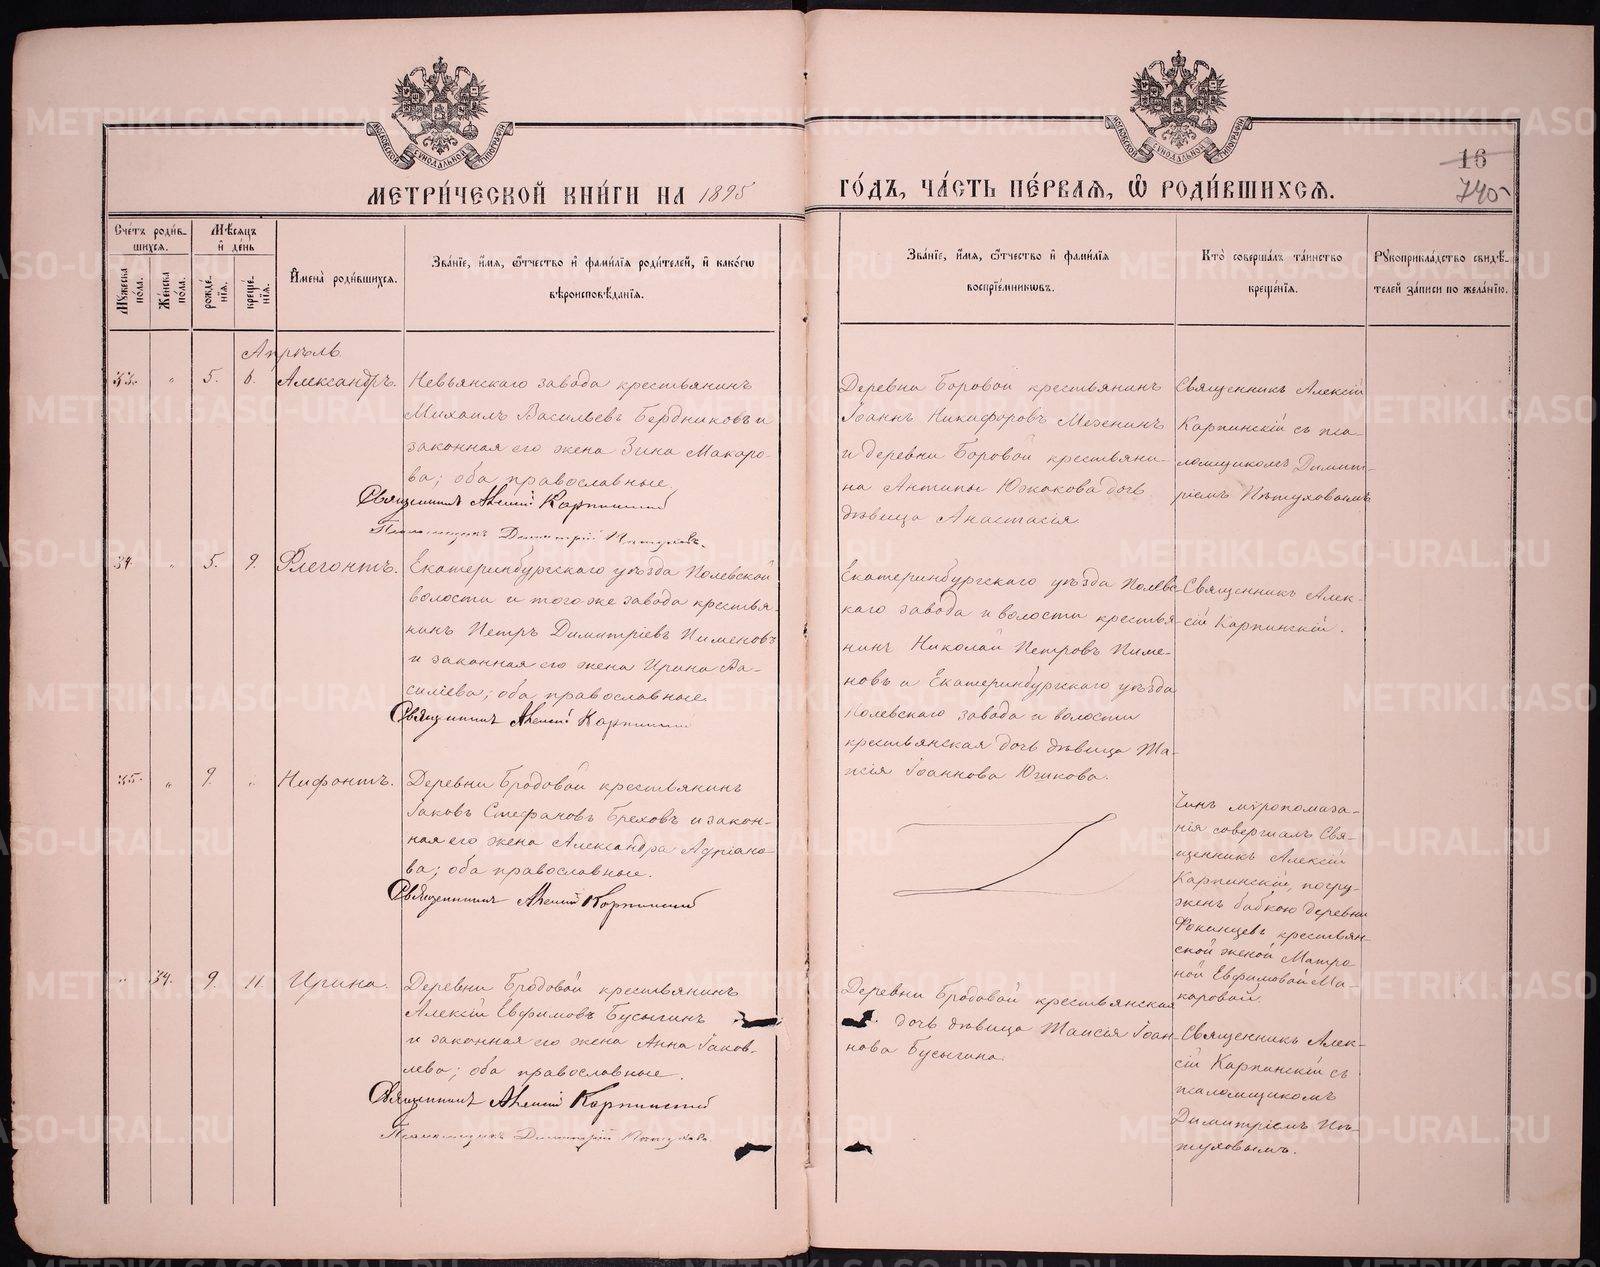 МОСКОВСКОЙ СѴНОДАЛЬНОЙ ТИПОГРАФІИ
МОСКОВСКОЙ СѴНОДАЛЬНОЙ ТИПОГРАФІИ
МЕТРИ́ЧЕСКОЙ КНИ́ГИ НА 1895
ГО́ДЪ, ЧА́СТЬ ПЕ́РВАѦ, Ѡ҆ РОДИ́ВШИХСѦ.
16
740
Сче́тъ роди́в-
шихсѧ.
Мѣ́сѧцъ
и҆ де́нь
Мꙋ́жеска по́ла.
Же́нска по́ла.
рожде́-
нїѧ.
креще́-
нїѧ.
И҆мена̀ роди́вшихсѧ.
Зва́нїе, и҆́мѧ, ѻ҆́тчество и҆ фами́лїѧ роди́телей, и҆ како́гѡ
вѣроисповѣ́данїѧ.
Зва́нїе, и҆́мѧ, ѻ҆́тчество и҆ фами́лїѧ
воспрїе́мникѡвъ.
Кто̀ соверша́лъ та́инство
креще́нїѧ.
Рꙋкоприкла́дство свидѣ́-
телей за́писи по жела́нїю.
Апрѣль
33. " 5. 6. Александръ.
Невьянскаго завода крестьянинъ
Михаилъ Васильевъ Бердниковъ и
законная его жена Зина Макаро-
ва; оба православные.
Священникъ Алексій Карпинскій
Псаломщикъ Димитрій Пѣтуховъ.
Деревни Боровой крестьянинъ
Іоаннъ Никифоровъ Мезенинъ
и деревни Боровой крестьяни-
на Антипы Южакова дочь
дѣвица Анастасія
Священникъ Алексій
Карпинскій съ пса-
ломщикомъ Димит-
ріемъ Пѣтуховымъ
34. " 5. 9. Флегонтъ.
Екатеринбургскаго уѣзда Полевской
волости и того же завода крестья-
нинъ Петръ Димитріевъ Пименовъ
и законная его жена Ирина Ва-
силіева; оба православные.
Священникъ Алексій Карпинскій
Екатеринбургскаго уѣзда Полевс-
каго завода и волости крестья-
нинъ Николай Петровъ Пиме-
новъ и Екатеринбургскаго уѣзда
Полевскаго завода и волости
крестьянская дочь дѣвица Та-
исія Іоаннова
Священникъ Алек-
сій Карпинскій.
35. " 9. " Нифонтъ.
Деревни Бродовой крестьянинъ
Іаковъ Стефановъ Бреховъ и закон-
ная его жена Александра Адріано-
ва; оба православные.
Священникъ Алексій Карпинскій
Чинъ мѵропомаза-
нія совершалъ Свя-
щенникъ Алексій
Карпинскій, погру-
женъ бабкою деревни
Фокинцевъ крестьян-
ской женой Матро-
ной Евфимовой Ма-
каровой
" 34. 9. 11. Ирина.
Деревни Бродовой крестьянинъ
Алексій Евфимовъ Бусыгинъ
и законная его жена Анна Іаков-
лева; оба православные.
Священникъ Алексій Карпинскій
Псаломщикъ Димитрій Пѣтуховъ.
Деревни Бродовой крестьянская
дочь дѣвица Таисія Іоан-
нова Бусыгина.
Священникъ Алек-
сій Карпинскій съ
псаломщикомъ
Димитріемъ Пѣ-
туховымъ.
METRIKI.GASO-URAL.RU